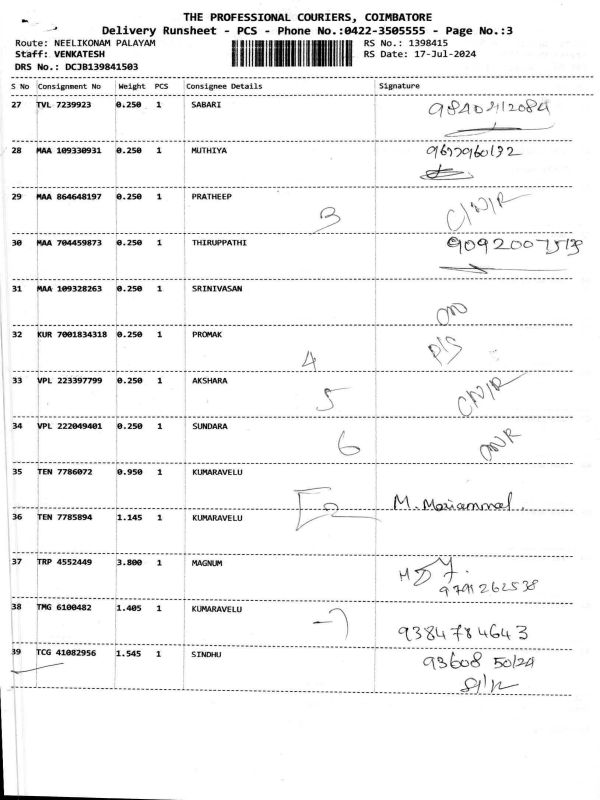 THE PROFESSIONAL COURIERS, COIMBATORE
Delivery Runsheet - PCS - Phone No.:0422-3505555 - Page No.:3
Route: NEELIKONAM PALAYAM RS No.: 1398415
Staff: VENKATESH RS Date: 17-Jul-2024
DRS No.: DCJB139841503
S No Consignment No Weight PCS Consignee Details Signature
27 TVL 7239923 0.250 1 SABARI
28 MAA 109330931 0.250 1 MUTHIYA
29 MAA 864648197 0.250 1 PRATHEEP 3 C/N/R
30 MAA 704459873 0.250 1 THIRUPPATHI
31 MAA 109328263 0.250 1 SRINIVASAN
32 KUR 7001834318 0.250 1 PROMAK 4 P/S
33 VPL 223397799 0.250 1 AKSHARA 5 C/N/R
34 VPL 222049401 0.250 1 SUNDARA 6
35 TEN 7786072 0.950 1 KUMARAVELU M. Mariammal.
36 TEN 7785894 1.145 1 KUMARAVELU 2
37 TRP 4552449 3.800 1 MAGNUM 9791262538
38 TMG 6100482 1.405 1 KUMARAVELU 9384784643
39 TCG 41082956 1.545 1 SINDHU